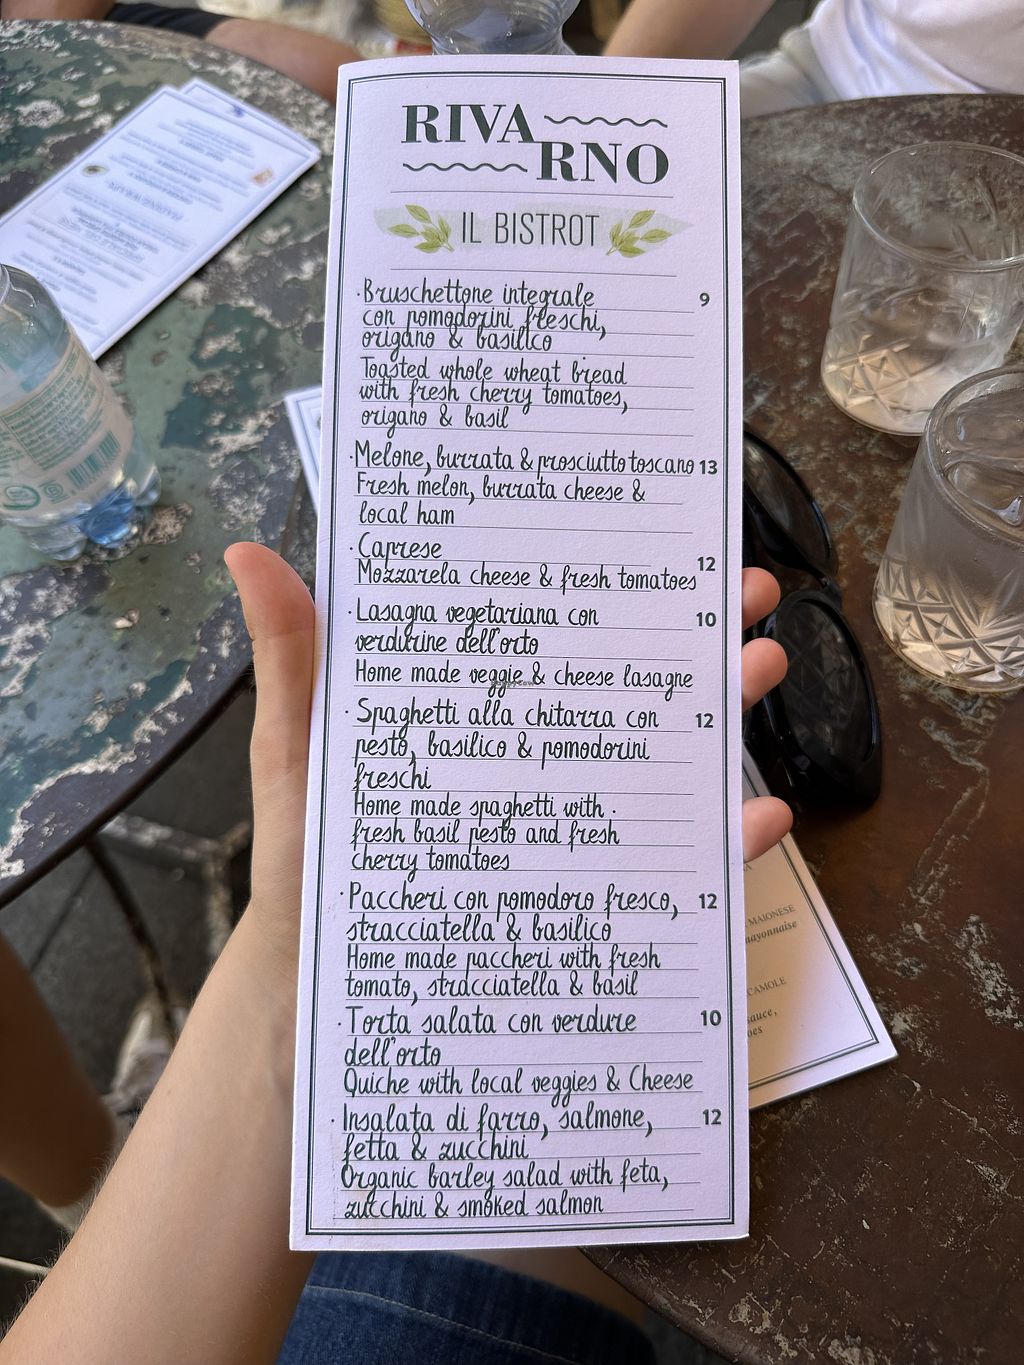 RIVA
RNO
IL BISTROT
· Bruschettone integrale 9
con pomodorini freschi,
origano & basilico
Toasted whole wheat bread
with fresh cherry tomatoes,
origano & basil
· Melone, burrata & prosciutto toscano 13
Fresh melon, burrata cheese &
local ham
· Caprese
Mozzarela cheese & fresh tomatoes 12
· Lasagna vegetariana con 10
verdurine dell'orto
Home made veggie & cheese lasagne
· Spaghetti alla chitarra con 12
pesto, basilico & pomodorini
freschi
Home made spaghetti with ·
fresh basil pesto and fresh
cherry tomatoes
· Paccheri con pomodoro fresco, 12
stracciatella & basilico
Home made paccheri with fresh
tomato, stracciatella & basil
· Torta salata con verdure 10
dell'orto
Quiche with local veggies & Cheese
· Insalata di farro, salmone, 12
fetta & zucchini
Organic barley salad with feta,
zucchini & smoked salmon
MAIONESE
mayonnaise
CAMOLE
sauce,
oes